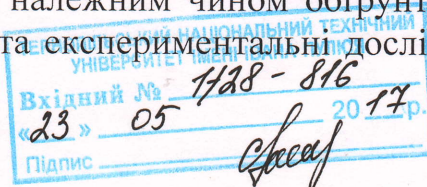 належним чином обґрунт
та експериментальні дослі
НАЦІОНАЛЬНИЙ ТЕХНІЧНИЙ
УНІВЕРСИТЕТ ІМЕНІ ІВАНА ПУЛЮЯ
Вхідний № 1/28 - 816
«23» 05 2017р.
Підпис